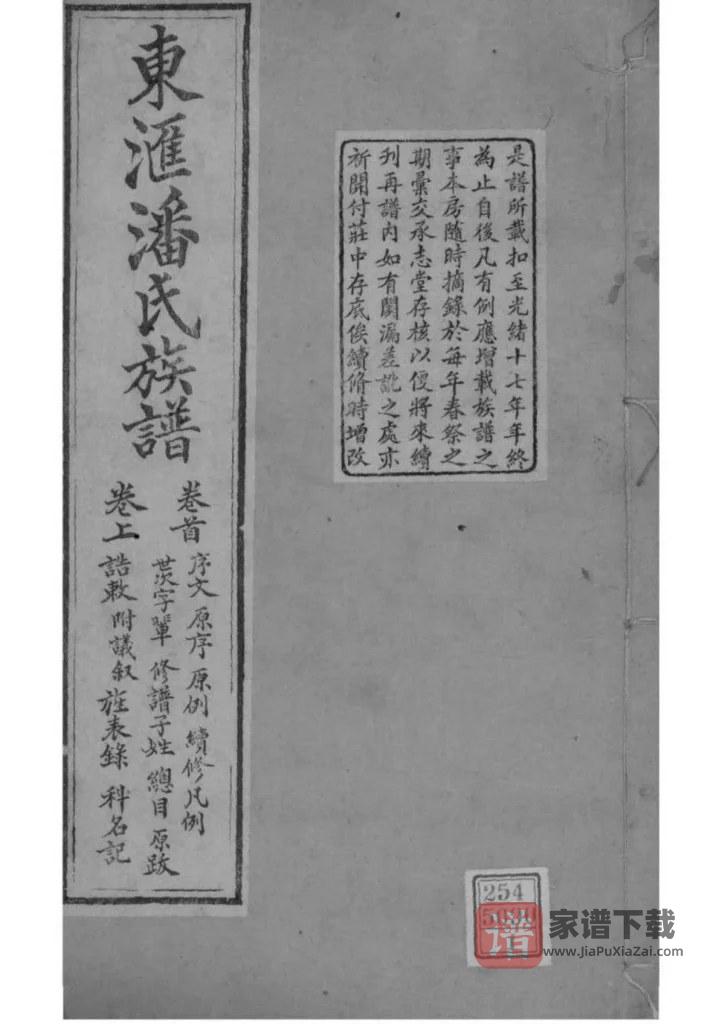 東滙潘氏族譜
卷首 序文 原序 原例 續修凡例
世次字輩 修譜子姓 總目 原跋
卷上 誥敕 附議叙 旌表錄 科名記
是譜所載扣至光緒十七年年終
為止自後凡有例應增載族譜之
事本房隨時摘錄於每年春祭之
期彙交承志堂存核以便將來續
刊再譜内如有闕漏差訛之處亦
祈開付莊中存底俟續脩時增改
254
譜
家谱下载
www.JiaPuXiaZai.com